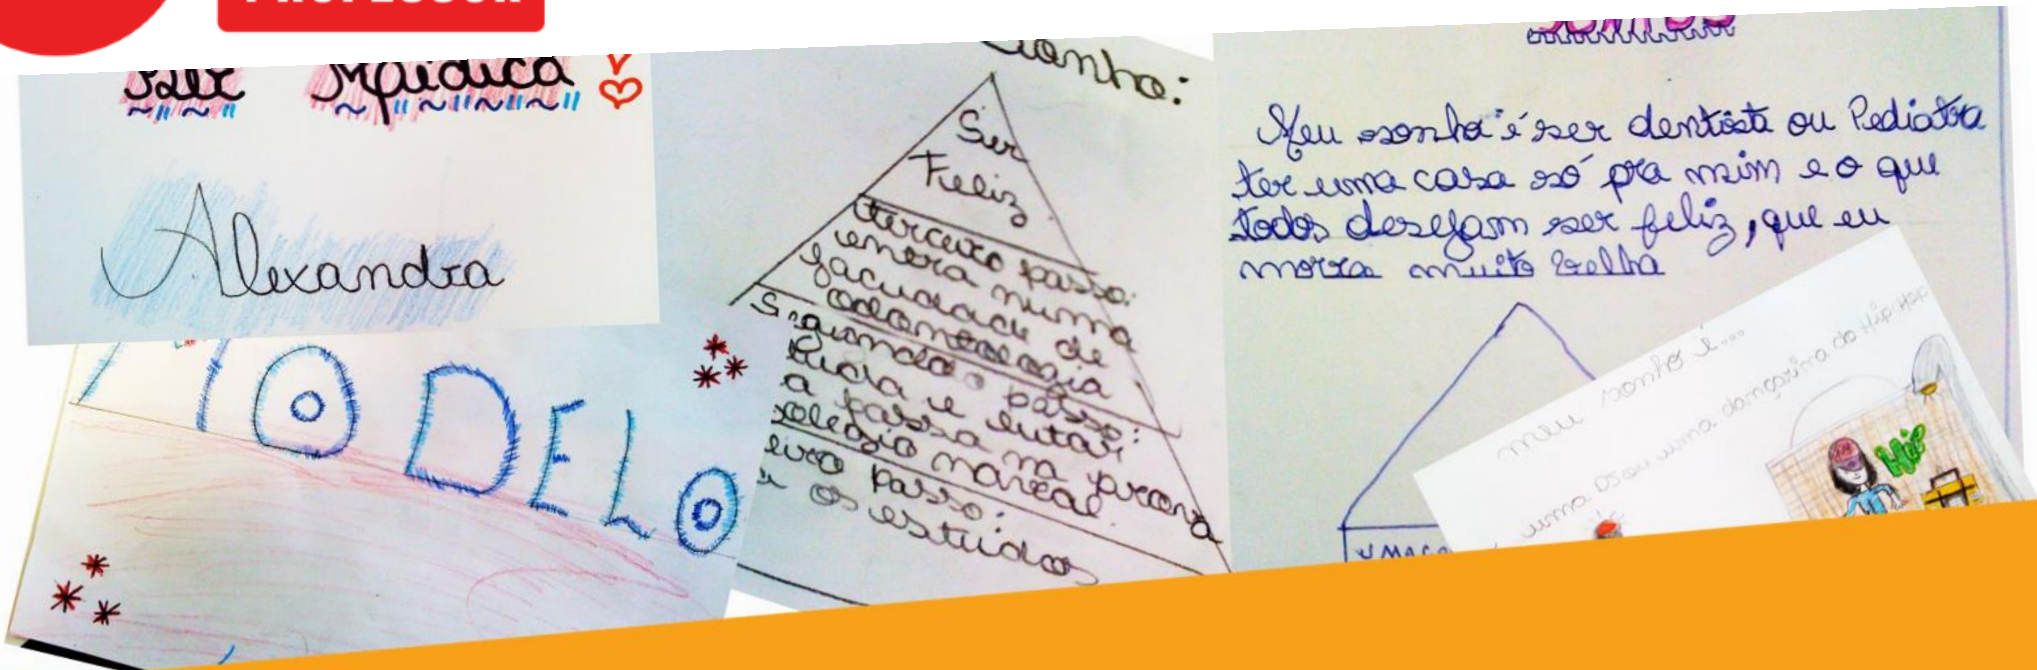 PROFESSOR
Ser Médica
Alexandra
MODELO
sonho:
Ser
Feliz
terceiro passo:
entra numa
facudade de
odontologia
Segundo passo:
e lutar
a passa na parana
colegio
passo:
os estudos
SONHO
Meu sonho é ser dentista ou Pediatra
ter uma casa só pra mim e o que
todos desejam ser feliz, que eu
morra muito velha
meu sonho é...
uma DJ ou uma dançarina do Hip Hop
Hip